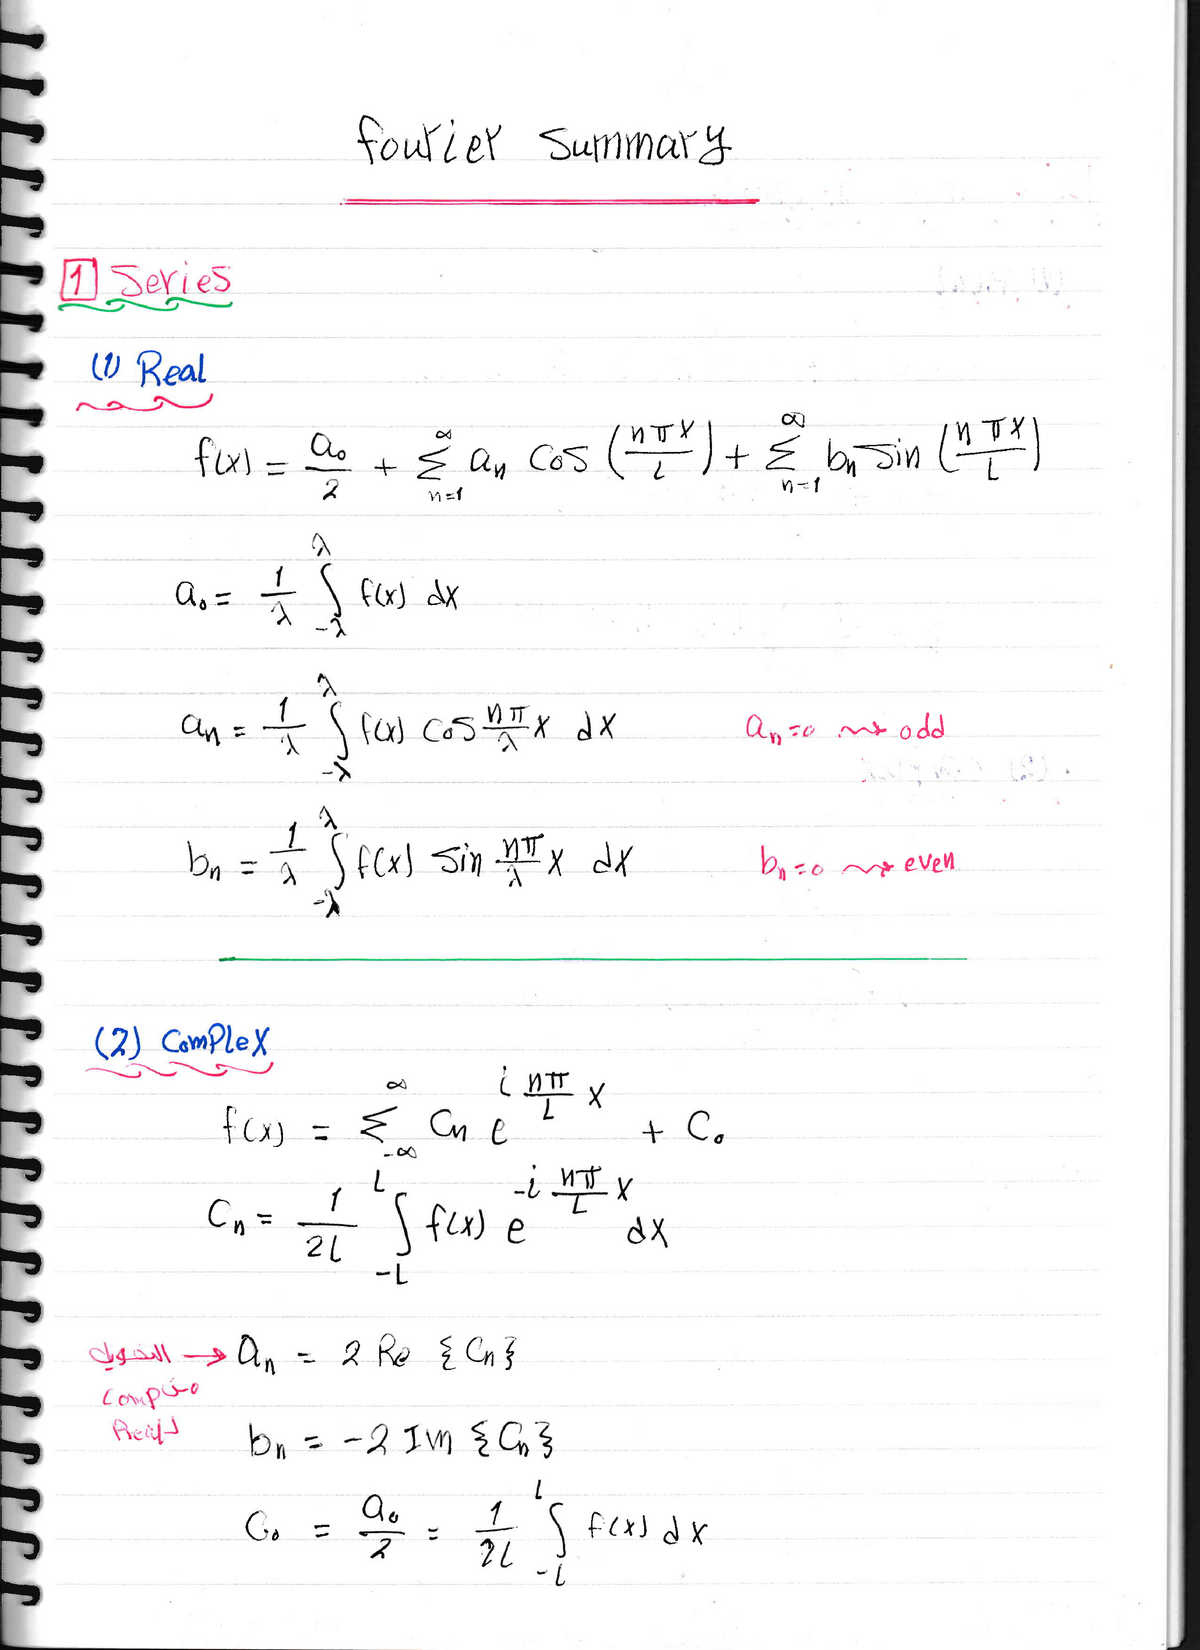 fourier Summary
1 Series
(1) Real
f(x) = a₀/2 + ∞Σn=1 aₙ cos (nπx/L) + ∞Σn=1 bₙ sin (nπx/L)
a₀ = 1/λ ∫_{-λ}^{λ} f(x) dx
aₙ = 1/λ ∫_{-λ}^{λ} f(x) cos nπ/λ x dx aₙ=0 ⇝ odd
bₙ = 1/λ ∫_{-λ}^{λ} f(x) sin nπ/λ x dx bₙ=0 ⇝ even
(2) Complex
f(x) = Σ_{-∞}^{∞} Cₙ e^{i nπ/L x} + C₀
Cₙ = 1/2L ∫_{-L}^{L} f(x) e^{-i nπ/L x} dx
التحويل → aₙ = 2 Re {Cₙ}
من comp
لـ Real
bₙ = -2 Im {Cₙ}
C₀ = a₀/2 = 1/2L ∫_{-L}^{L} f(x) dx